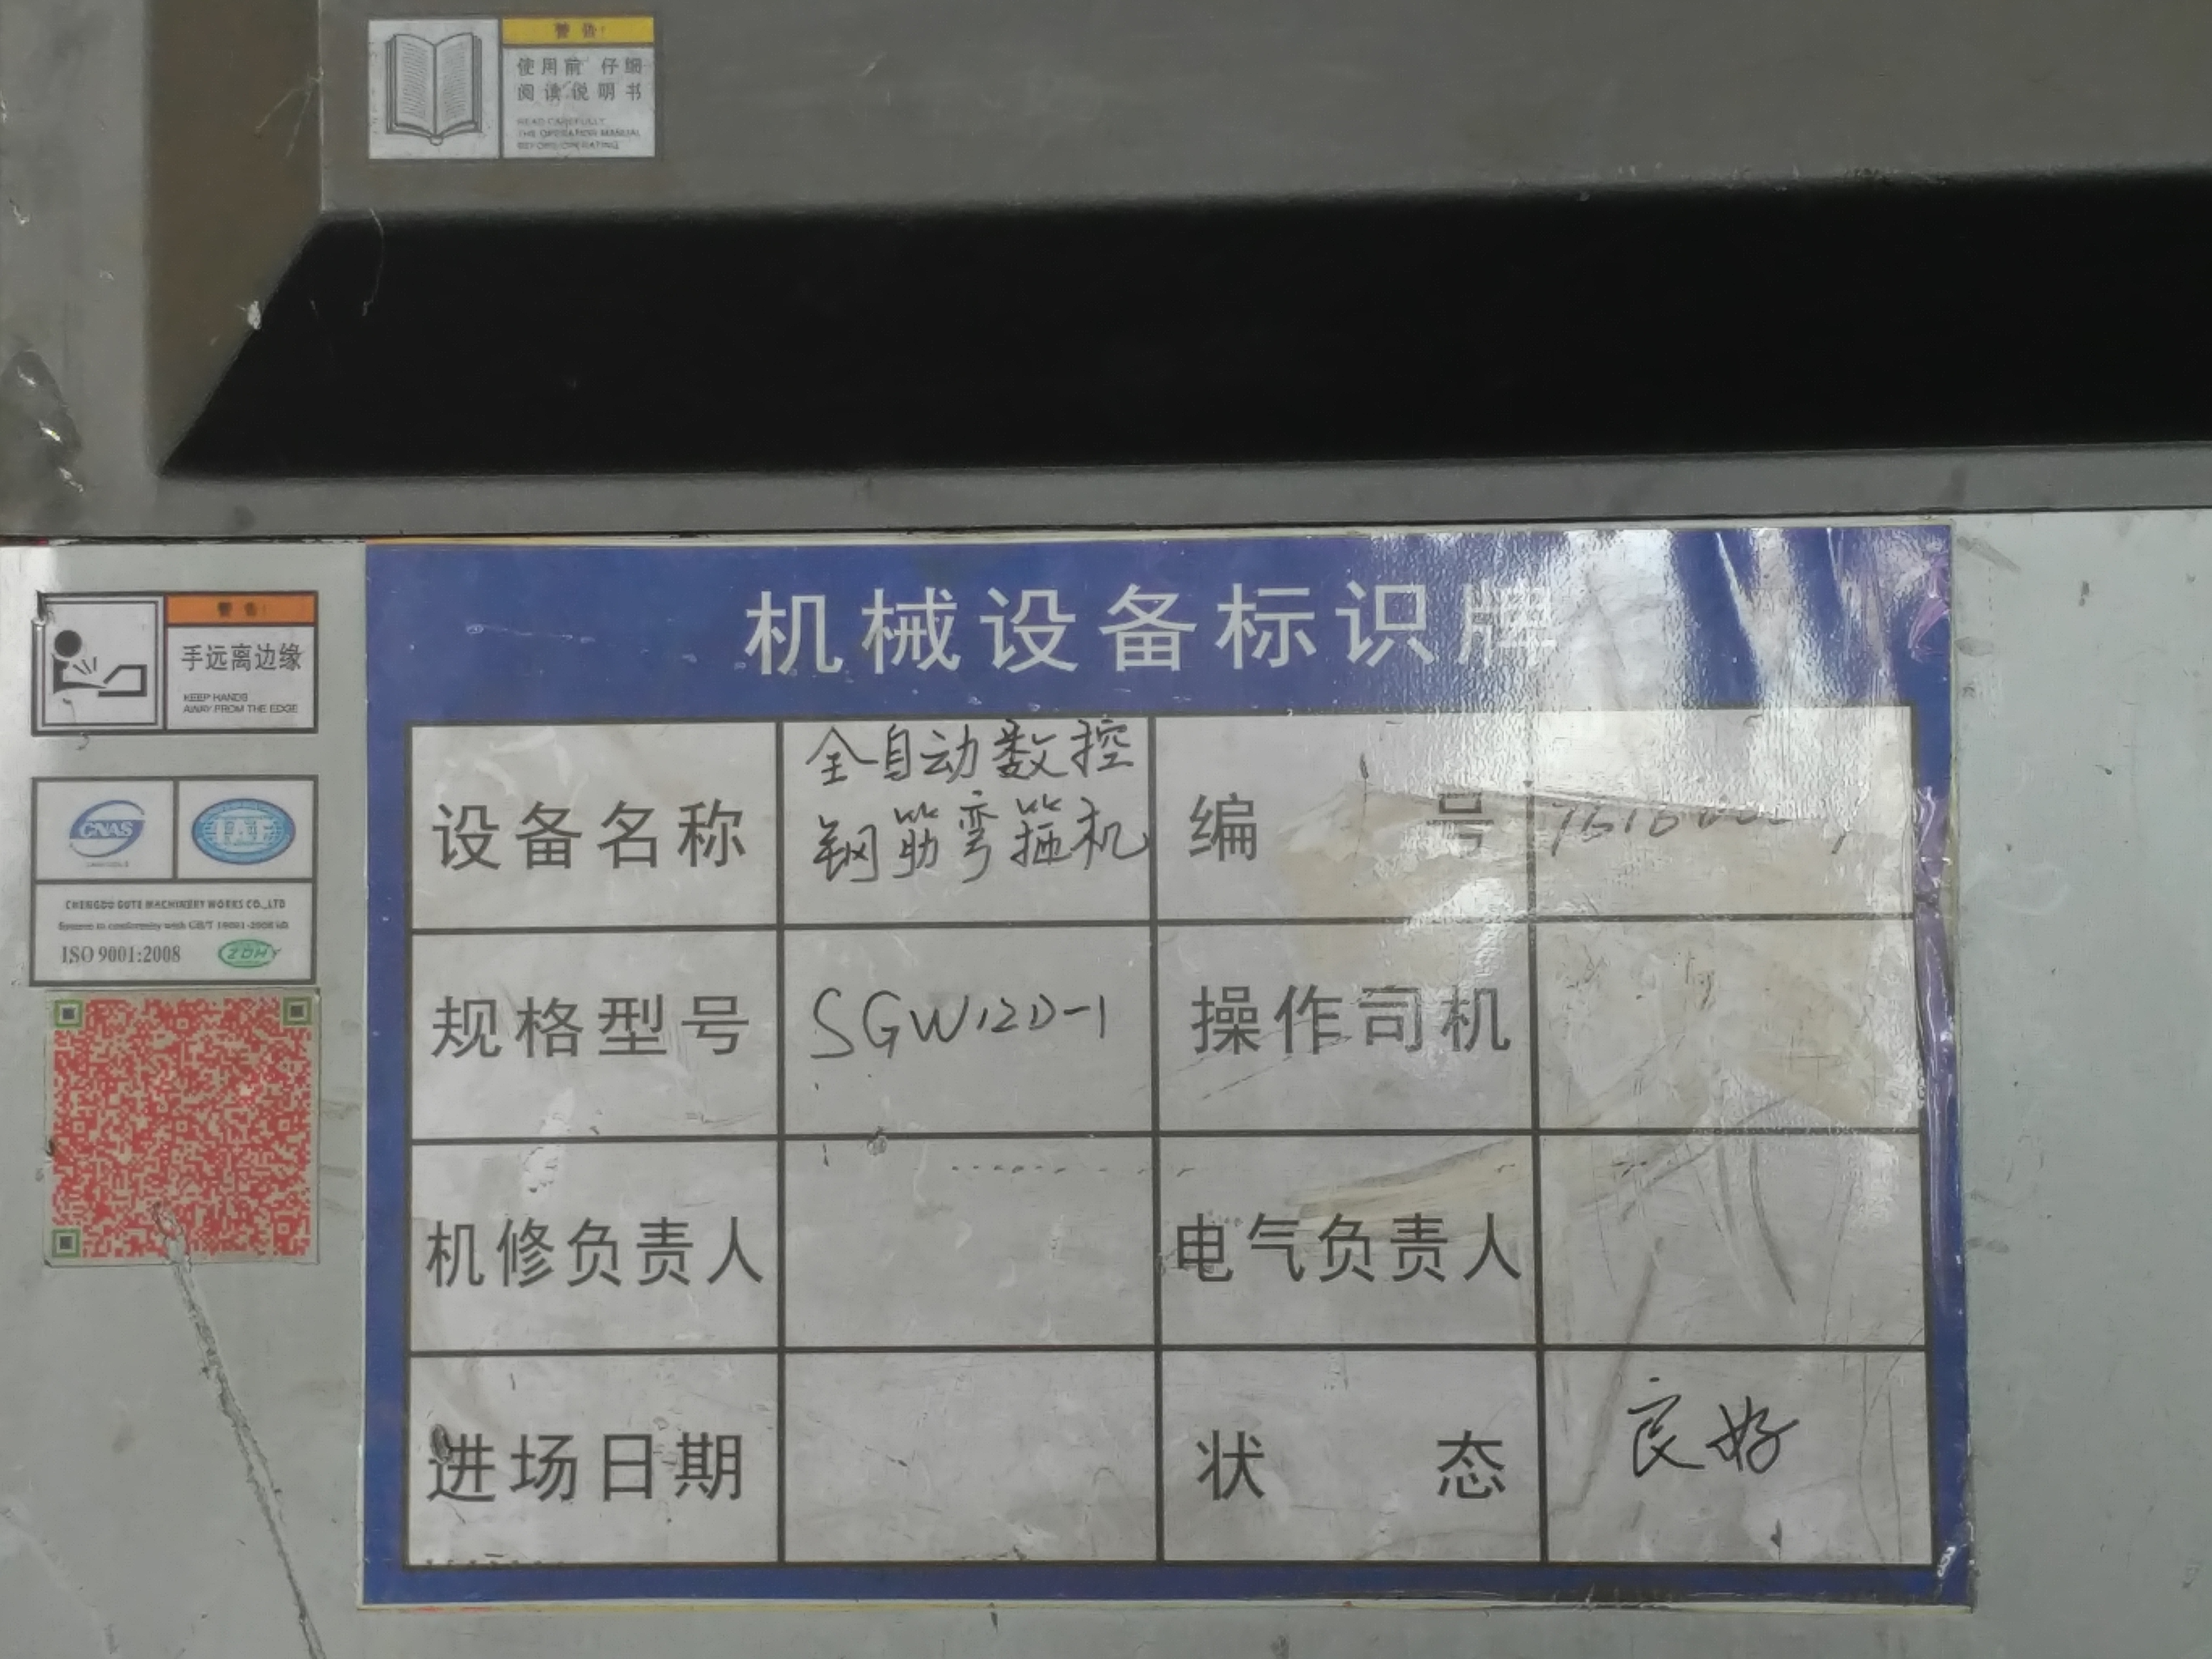 警告!
使用前 仔细
阅读说明书
READ CAREFULLY
THE OPERATION MANUAL
BEFORE OPERATING
机械设备标识牌
警告!
手远离边缘
KEEP HANDS
AWAY FROM THE EDGE
CNAS
IAF
CHENGDU GUTE MACHINERY WORKS CO.,LTD
System in conformity with GB/T 19001-2008 idt
ISO 9001:2008
ZDHY
设备名称 全自动数控
钢筋弯箍机
编号
规格型号 SGW12D-1 操作司机
机修负责人 电气负责人
进场日期 状态 良好